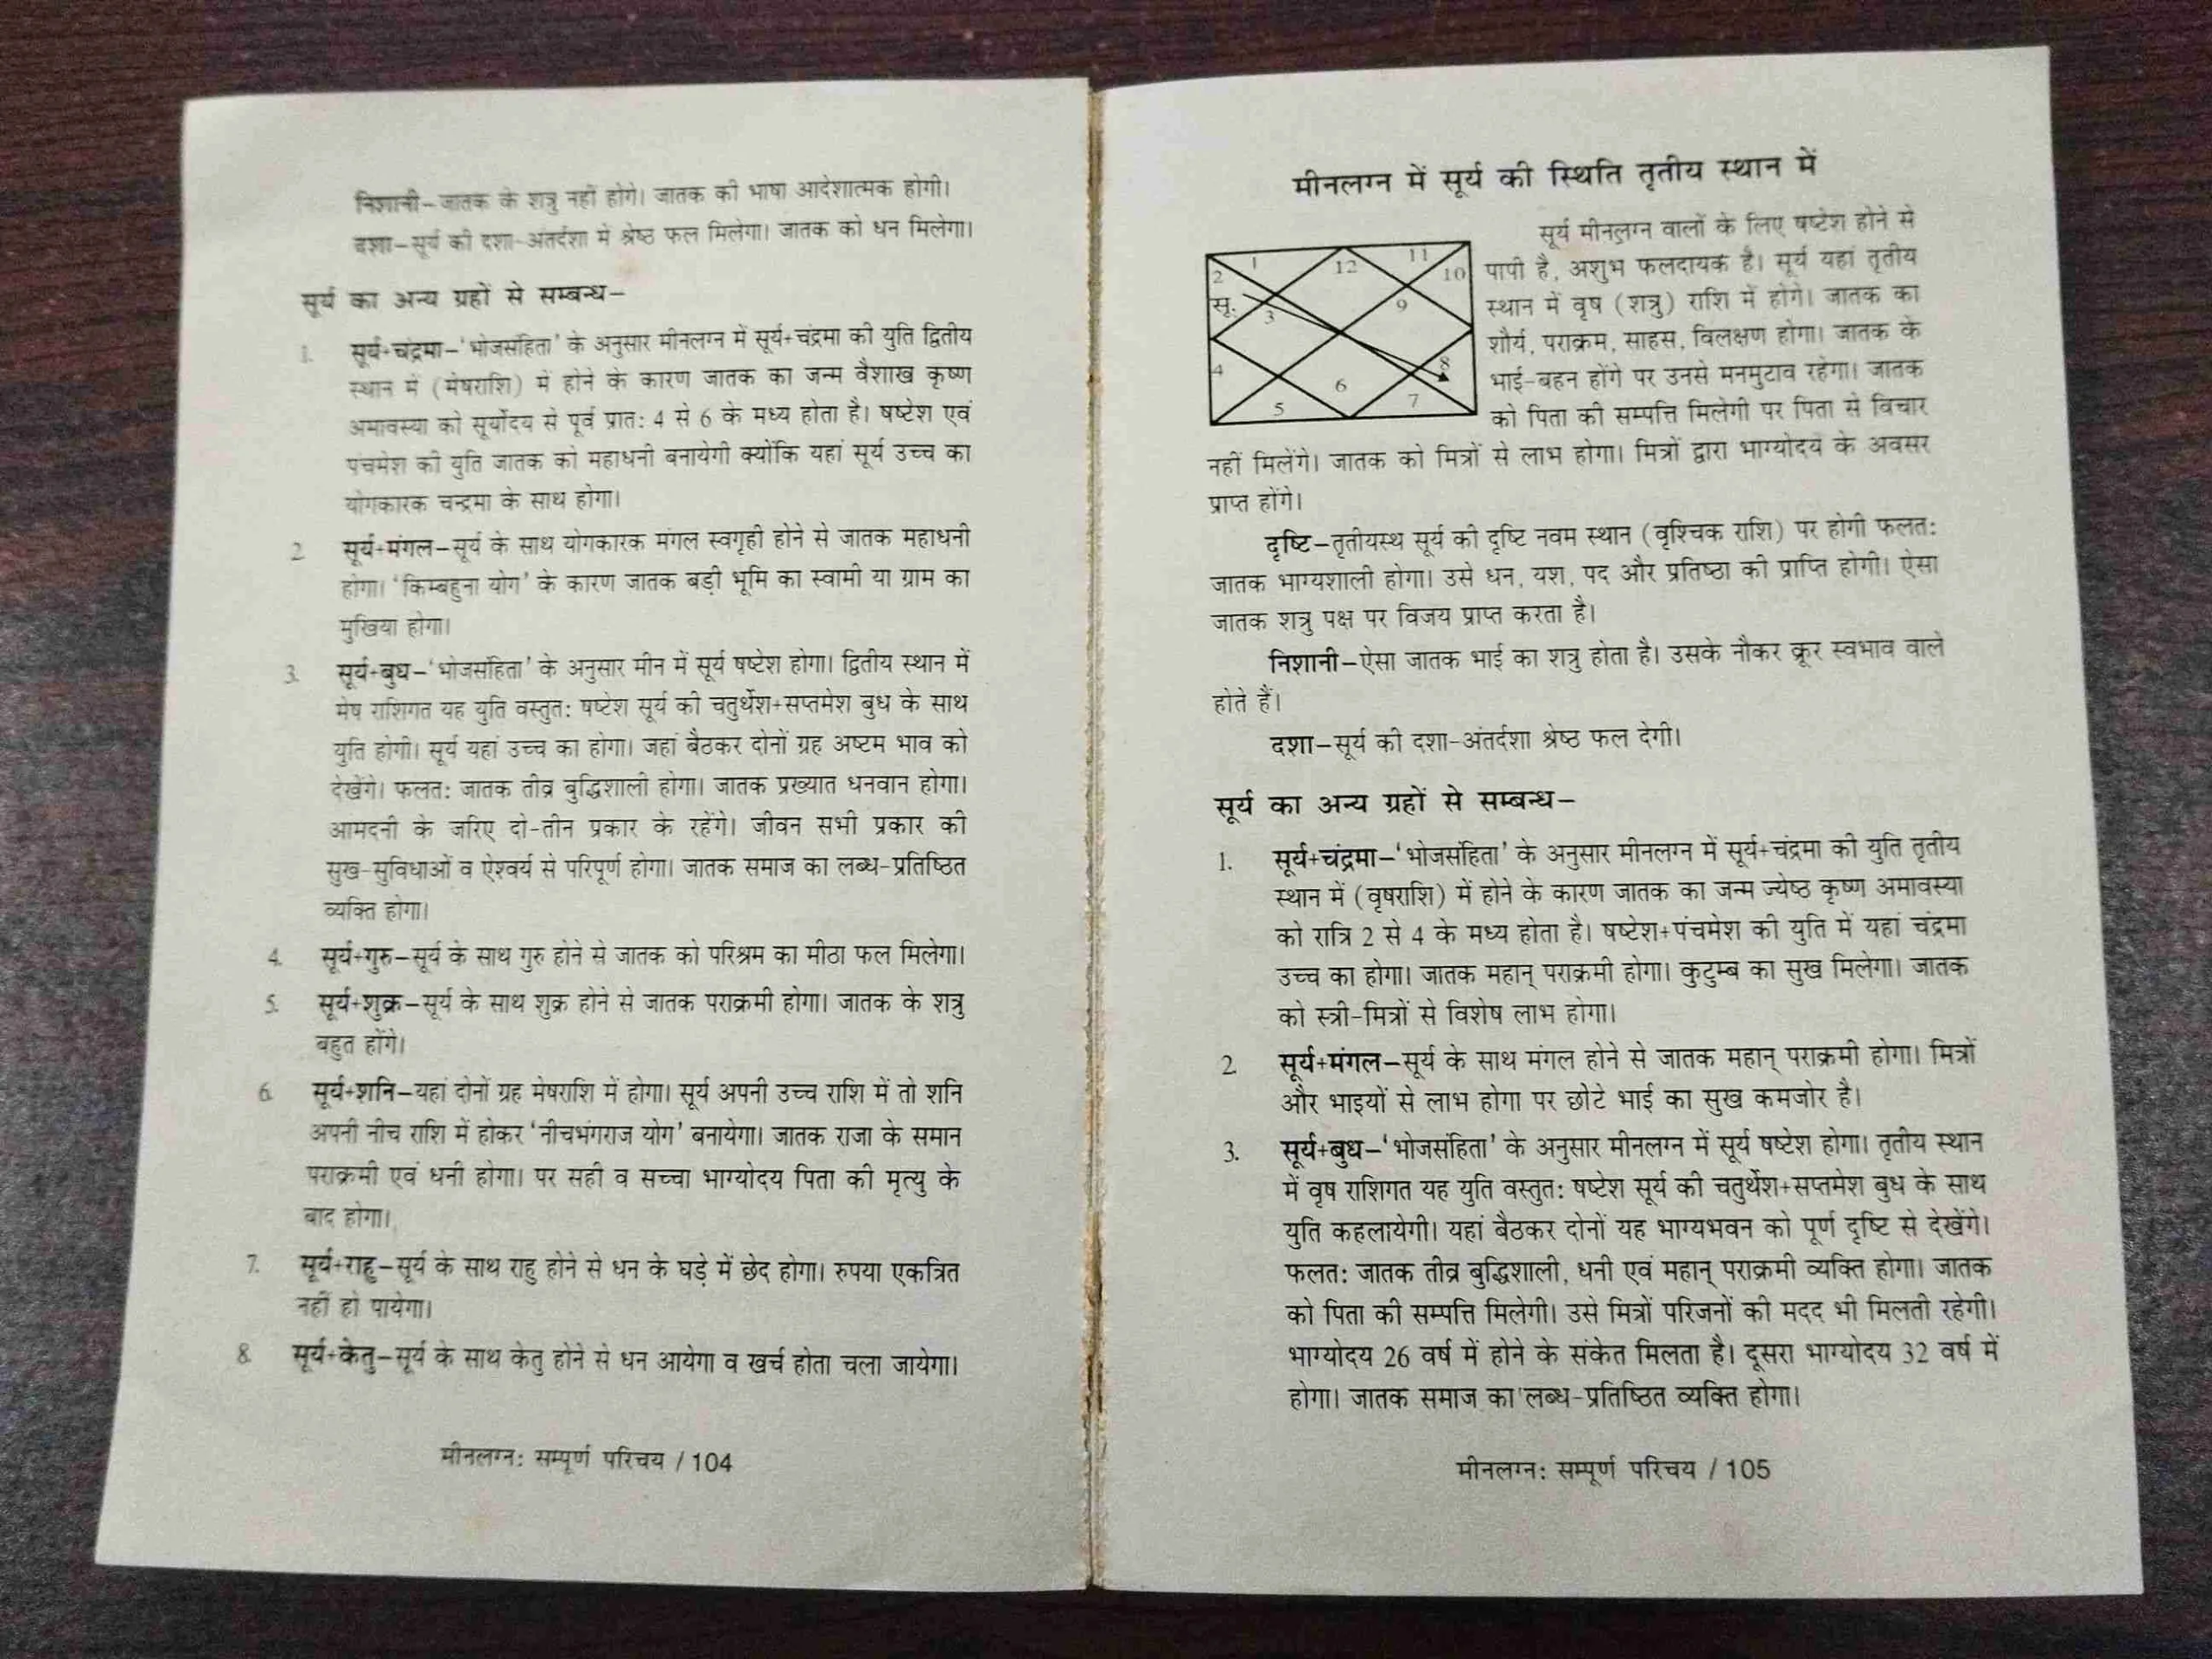 निशानी–जातक के शत्रु नहीं होंगे। जातक की भाषा आदेशात्मक होगी।
दशा–सूर्य की दशा-अंतर्दशा में श्रेष्ठ फल मिलेगा। जातक को धन मिलेगा।
सूर्य का अन्य ग्रहों से सम्बन्ध–
1. सूर्य+चंद्रमा–'भोजसंहिता' के अनुसार मीनलग्न में सूर्य+चंद्रमा की युति द्वितीय
स्थान में (मेषराशि) में होने के कारण जातक का जन्म वैशाख कृष्ण
अमावस्या को सूर्योदय से पूर्व प्रात: 4 से 6 के मध्य होता है। षष्टेश एवं
पंचमेश की युति जातक को महाधनी बनायेगी क्योंकि यहां सूर्य उच्च का
योगकारक चन्द्रमा के साथ होगा।
2 सूर्य+मंगल–सूर्य के साथ योगकारक मंगल स्वगृही होने से जातक महाधनी
होगा। 'किम्बहुना योग' के कारण जातक बड़ी भूमि का स्वामी या ग्राम का
मुखिया होगा।
3. सूर्य+बुध–'भोजसंहिता' के अनुसार मीन में सूर्य षष्टेश होगा। द्वितीय स्थान में
मेष राशिगत यह युति वस्तुत: षष्टेश सूर्य की चतुर्थेश+सप्तमेश बुध के साथ
युति होगी। सूर्य यहां उच्च का होगा। जहां बैठकर दोनों ग्रह अष्टम भाव को
देखेंगे। फलत: जातक तीव्र बुद्धिशाली होगा। जातक प्रख्यात धनवान होगा।
आमदनी के जरिए दो-तीन प्रकार के रहेंगे। जीवन सभी प्रकार की
सुख-सुविधाओं व ऐश्वर्य से परिपूर्ण होगा। जातक समाज का लब्ध-प्रतिष्ठित
व्यक्ति होगा।
4. सूर्य+गुरु–सूर्य के साथ गुरु होने से जातक को परिश्रम का मीठा फल मिलेगा।
5. सूर्य+शुक्र–सूर्य के साथ शुक्र होने से जातक पराक्रमी होगा। जातक के शत्रु
बहुत होंगे।
6. सूर्य+शनि–यहां दोनों ग्रह मेषराशि में होगा। सूर्य अपनी उच्च राशि में तो शनि
अपनी नीच राशि में होकर 'नीचभंगराज योग' बनायेगा। जातक राजा के समान
पराक्रमी एवं धनी होगा। पर सही व सच्चा भाग्योदय पिता की मृत्यु के
बाद होगा।
7. सूर्य+राहु–सूर्य के साथ राहु होने से धन के घड़े में छेद होगा। रुपया एकत्रित
नहीं हो पायेगा।
8. सूर्य+केतु–सूर्य के साथ केतु होने से धन आयेगा व खर्च होता चला जायेगा।
मीनलग्न: सम्पूर्ण परिचय / 104
मीनलग्न में सूर्य की स्थिति तृतीय स्थान में
1 2 सू. 3 4 5 6 7 8 9 10 11 12
सूर्य मीनलग्न वालों के लिए षष्टेश होने से
पापी है, अशुभ फलदायक है। सूर्य यहां तृतीय
स्थान में वृष (शत्रु) राशि में होगे। जातक का
शौर्य, पराक्रम, साहस, विलक्षण होगा। जातक के
भाई-बहन होंगे पर उनसे मनमुटाव रहेगा। जातक
को पिता की सम्पत्ति मिलेगी पर पिता से विचार
नहीं मिलेंगे। जातक को मित्रों से लाभ होगा। मित्रों द्वारा भाग्योदय के अवसर
प्राप्त होंगे।
दृष्टि–तृतीयस्थ सूर्य की दृष्टि नवम स्थान (वृश्चिक राशि) पर होगी फलत:
जातक भाग्यशाली होगा। उसे धन, यश, पद और प्रतिष्ठा की प्राप्ति होगी। ऐसा
जातक शत्रु पक्ष पर विजय प्राप्त करता है।
निशानी–ऐसा जातक भाई का शत्रु होता है। उसके नौकर क्रूर स्वभाव वाले
होते हैं।
दशा–सूर्य की दशा-अंतर्दशा श्रेष्ठ फल देगी।
सूर्य का अन्य ग्रहों से सम्बन्ध–
1. सूर्य+चंद्रमा–'भोजसंहिता' के अनुसार मीनलग्न में सूर्य+चंद्रमा की युति तृतीय
स्थान में (वृषराशि) में होने के कारण जातक का जन्म ज्येष्ठ कृष्ण अमावस्या
को रात्रि 2 से 4 के मध्य होता है। षष्टेश+पंचमेश की युति में यहां चंद्रमा
उच्च का होगा। जातक महान् पराक्रमी होगा। कुटुम्ब का सुख मिलेगा। जातक
को स्त्री-मित्रों से विशेष लाभ होगा।
2. सूर्य+मंगल–सूर्य के साथ मंगल होने से जातक महान् पराक्रमी होगा। मित्रों
और भाइयों से लाभ होगा पर छोटे भाई का सुख कमजोर है।
3. सूर्य+बुध–'भोजसंहिता' के अनुसार मीनलग्न में सूर्य षष्टेश होगा। तृतीय स्थान
में वृष राशिगत यह युति वस्तुत: षष्टेश सूर्य की चतुर्थेश+सप्तमेश बुध के साथ
युति कहलायेगी। यहां बैठकर दोनों यह भाग्यभवन को पूर्ण दृष्टि से देखेंगे।
फलत: जातक तीव्र बुद्धिशाली, धनी एवं महान् पराक्रमी व्यक्ति होगा। जातक
को पिता की सम्पत्ति मिलेगी। उसे मित्रों परिजनों की मदद भी मिलती रहेगी।
भाग्योदय 26 वर्ष में होने के संकेत मिलता है। दूसरा भाग्योदय 32 वर्ष में
होगा। जातक समाज का लब्ध-प्रतिष्ठित व्यक्ति होगा।
मीनलग्न: सम्पूर्ण परिचय / 105